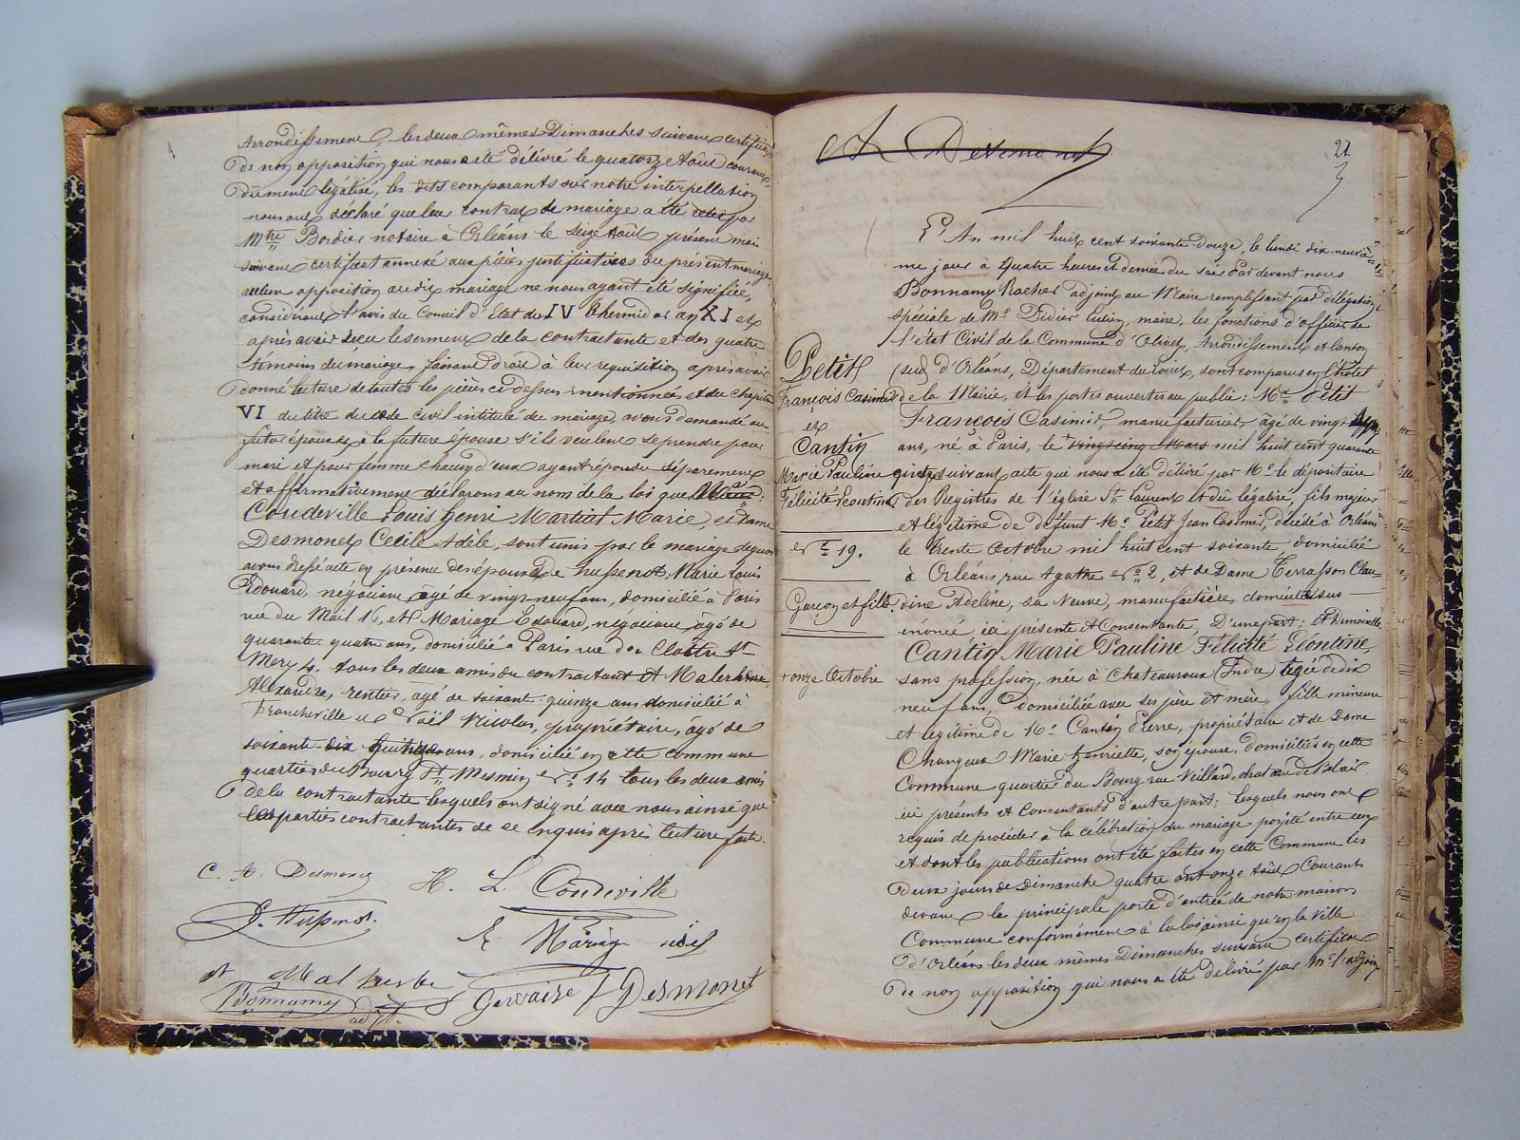 Arrondissement, les deux mêmes Dimanches suivant certificat
de non opposition qui nous a été délivré le quatorze Août courant
dûment légalisé, les dits comparants sur notre interpellation
nous ont déclaré que leur contrat de mariage a été reçu par
Mtre Bordier notaire à Orléans le seize Août présent mois
suivant certificat annexé aux pièces justificatives du présent mariage
aucune opposition au dit mariage ne nous ayant été signifiée,
considérant l'avis du Conseil d'Etat du IV thermidor an XI et
après avoir reçu le serment de la contractante et des quatre
témoins du mariage, faisant droit à leur réquisition après avoir
donné lecture de toutes les pièces ci-dessus mentionnées et du chapitre
VI du titre du code Civil intitulé du mariage, avons demandé au
futur époux et à la future épouse s'ils veulent se prendre pour
mari et pour femme chacun d'eux ayant répondu séparément
et affirmativement déclarons au nom de la loi que
Coudeville Louis Henri Martial Marie, et Dame
Desmonet Cécile Adèle, sont unis par le mariage de quoi
avons dressé acte en présence des époux de Hussenot Marie Louis
Edouard, négociant âgé de vingt neuf ans, domicilié à Paris
rue du Mail 16, et Mariage Edouard, négociant âgé de
quarante quatre ans, domicilié à Paris rue du Cloître St
Mery 4. tous les deux amis du contractant et Malerbe
Alexandre, rentier, âgé de soixante quinze ans domicilié à
Francheville et Noël Nicolas, propriétaire, âgé de
soixante dix huit ans, domicilié en cette commune
quartier du Bourg St Mesmin n° 14 tous les deux amis
de la contractante lesquels ont signé avec nous ainsi que
les parties contractantes de ce enquis après lecture faite.
C. A. Desmonet
H. L. Coudeville
J. Hussenot
E. Mariage
Noël
A Malherbe
Gervaise Desmonet
Bonnamy
adjt.
A Desmonet
21
L'An mil huit cent soixante Douze, le lundi dix neuviè-
me jour à Quatre heures et demie du soir Par devant nous
Bonnamy Rocher adjoint au Maire remplissant par délégation
spéciale de Mr Didier maire, les fonctions d'officier de
l'état Civil de la Commune d'Olivet, Arrondissement et Canton
(sud) d'Orléans, Département du Loiret, sont comparus en l'hôtel
de la Mairie, et les portes ouvertes au public: Mr Petit
François Casimir, manufacturier, âgé de vingt sept
ans, né à Paris, le vingt cinq Mars mil huit cent quarante
cinq, suivant acte que nous a été délivré par Mr le dépositaire
des Registres de l'église St Laurent et dû légalisé, fils majeur
et légitime de défunt Mr Petit Jean Casimir, décédé à Orléans
le trente Octobre mil huit cent soixante domicilié
à Orléans, rue Agathe n° 2, et de Dame Terrasson Clau-
dine Adeline, sa Veuve, manufacturière, domiciliée sus
énoncé, ici présente et Consentante D'une part; et Demoiselle
Cantin Marie Pauline Félicité Léontine,
sans profession, née à Chateauroux (Indre) âgée de dix
neuf ans, Domiciliée avec ses père et mère, fille mineure
et légitime de Mr Cantin Pierre, propriétaire et de Dame
Marie Henriette, son épouse, domiciliés en cette
Commune quartier du Bourg rue Veillard, chateau de Belair
ici présents et Consentants d'autre part; lesquels nous ont
requis de procéder à la célébration du mariage projeté entre eux
et dont les publications ont été faites en cette Commune les
deux jours de Dimanche quatre et onze Août Courant
devant la principale porte d'entrée de notre maison
Commune conformément à la loi ainsi qu'en la Ville
d'Orléans les deux mêmes Dimanches suivant certificat
de non opposition qui nous a été délivré par Mr l'adjoint
Petit
François Casimir
et
Cantin
Marie Pauline
Félicité Léontine
n° 19.
Garçon et fille.
onze Octobre